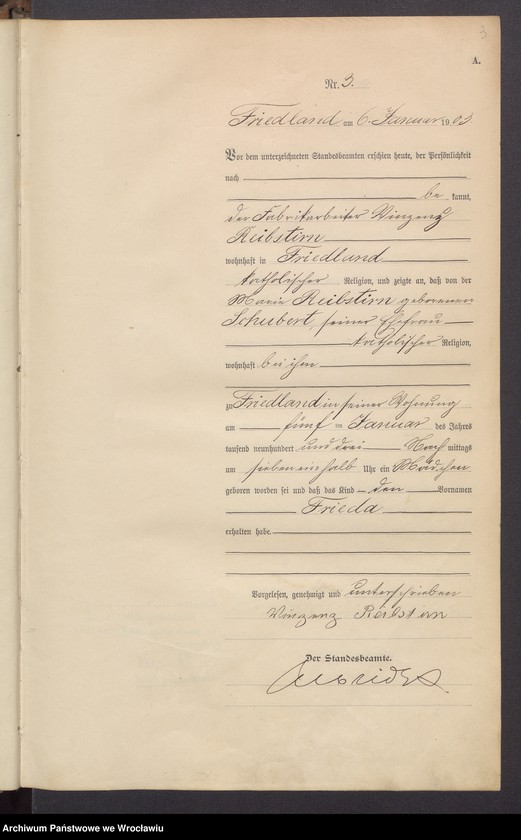 3
A.
Nr. 3.
Friedland am 6. Januar 1903
Vor dem unterzeichneten Standesbeamten erschien heute, der Persönlichkeit
nach
be kannt,
der Fabrikarbeiter Vinzenz
Reibstirn
wohnhaft in Friedland
katholischer Religion, und zeigte an, daß von der
Marie Reibstirn geborenen
Schubert, seiner Ehefrau
katholischer Religion,
wohnhaft bei ihm
zu Friedland in seiner Wohnung
am fünf ten Januar des Jahres
tausend neunhundert und drei Nach mittags
um sieben einhalb Uhr ein Mädchen
geboren worden sei und daß das Kind den Vornamen
Frieda
erhalten habe.
Vorgelesen, genehmigt und unterschrieben
Vinzenz Reibstirn
Der Standesbeamte.
Archiwum Państwowe we Wrocławiu